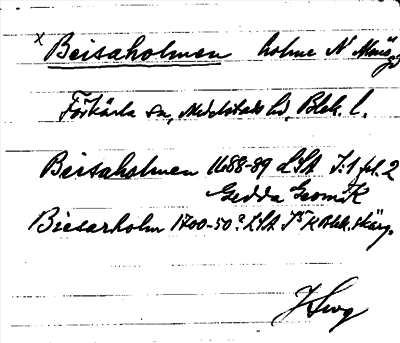 x Beisaholmen holme N Mars
gd
Förkärla sn, Medelstads hd, Blek. l.
Beisaholmen 1688-89 LSA I:1 fol. 2
Gedda Geom K
Biesarholm 1700-50? LSA I5 K Blek. skärg.